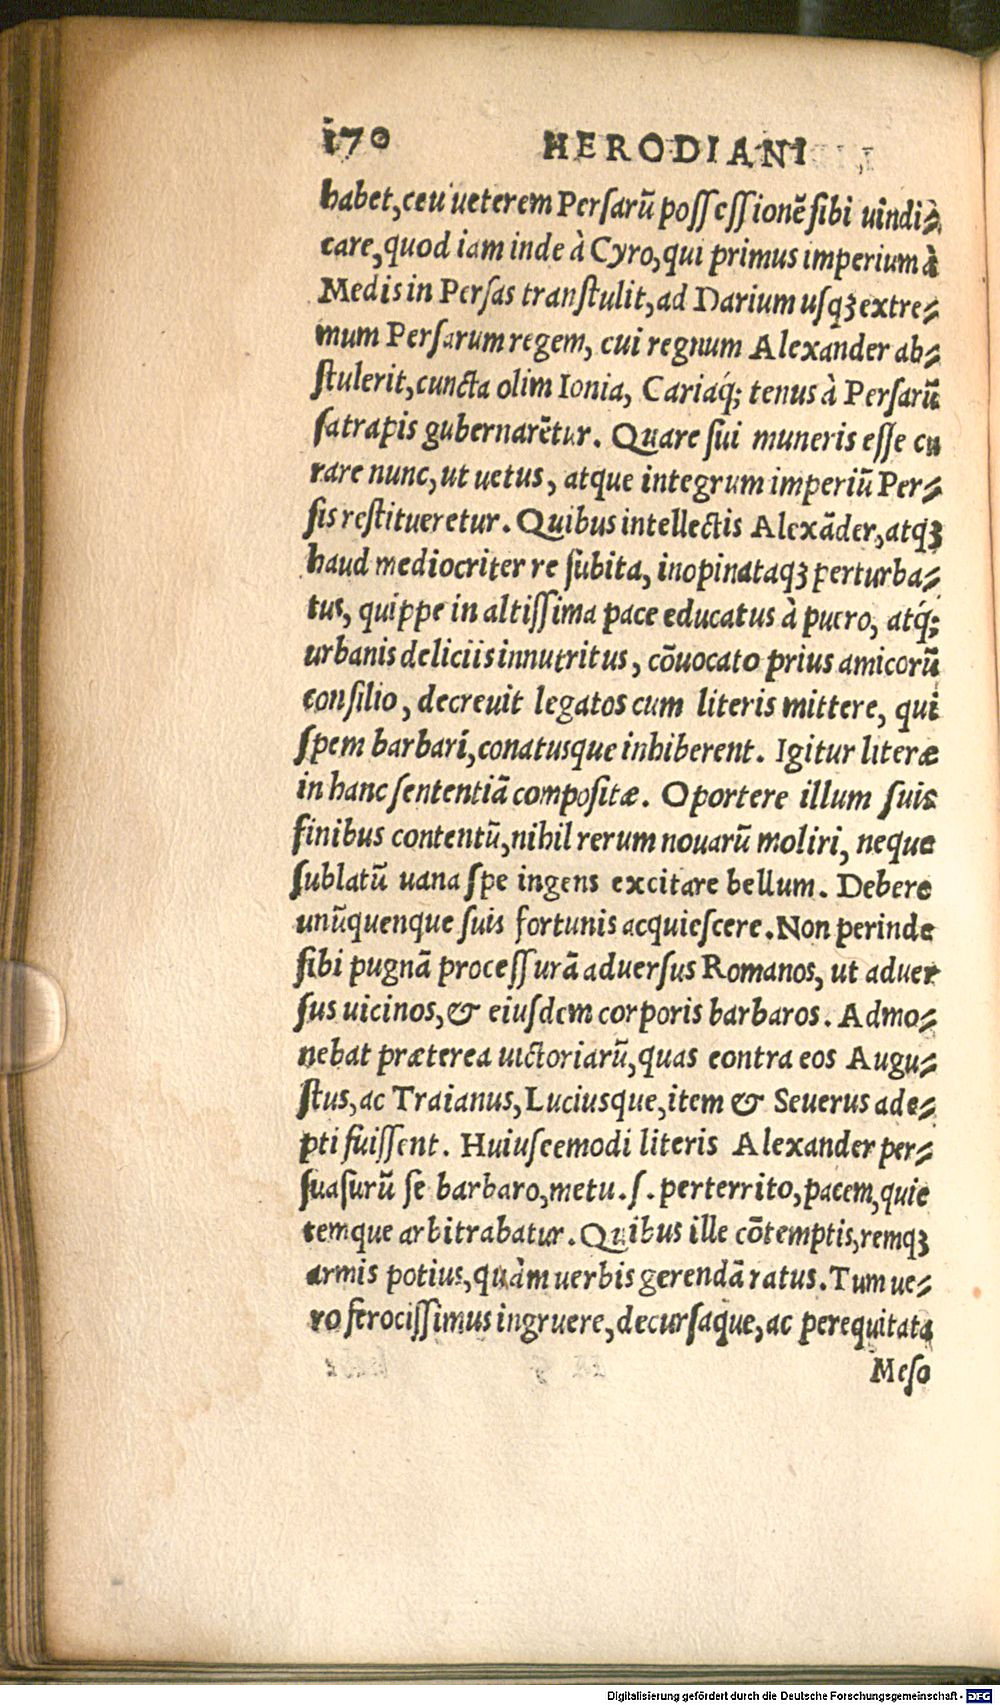 170 HERODIANI
habet, ceu ueterem Persarũ possessionẽ sibi uindi-
care, quod iam inde à Cyro, qui primus imperium à
Medis in Persas transtulit, ad Darium usqꝫ extre-
mum Persarum regem, cui regnum Alexander ab-
stulerit, cuncta olim Ionia, Cariaq́; tenus à Persarũ
satrapis gubernarẽtur. Quare sui muneris esse cu
rare nunc, ut uetus, atque integrum imperiũ Per-
sis restitueretur. Quibus intellectis Alexãder, atqꝫ
haud mediocriter re subita, inopinataqꝫ perturba-
tus, quippe in altissima pace educatus à puero, atq́;
urbanis deliciis innutritus, cõuocato prius amicorũ
consilio, decreuit legatos cum literis mittere, qui
spem barbari, conatusque inhiberent. Igitur literæ
in hanc sententiã compositæ. Oportere illum suis
finibus contentũ, nihil rerum nouarũ moliri, neque
sublatũ uana spe ingens excitare bellum. Debere
unũquenque suis fortunis acquiescere. Non perinde
sibi pugnã processurã aduersus Romanos, ut aduer
sus uicinos, & eiusdem corporis barbaros. Admo-
nebat præterea uictoriarũ, quas contra eos Augu-
stus, ac Traianus, Luciusque, item & Seuerus ade-
pti fuissent. Huiuscemodi literis Alexander per-
suasurũ se barbaro, metu .s. perterrito, pacem, quie
temque arbitrabatur. Quibus ille cõtemptis, remqꝫ
armis potius, quàm uerbis gerendã ratus. Tum ue-
ro ferocissimus ingruere, decursaque, ac perequitata
Meso
Digitalisierung gefördert durch die Deutsche Forschungsgemeinschaft - DFG